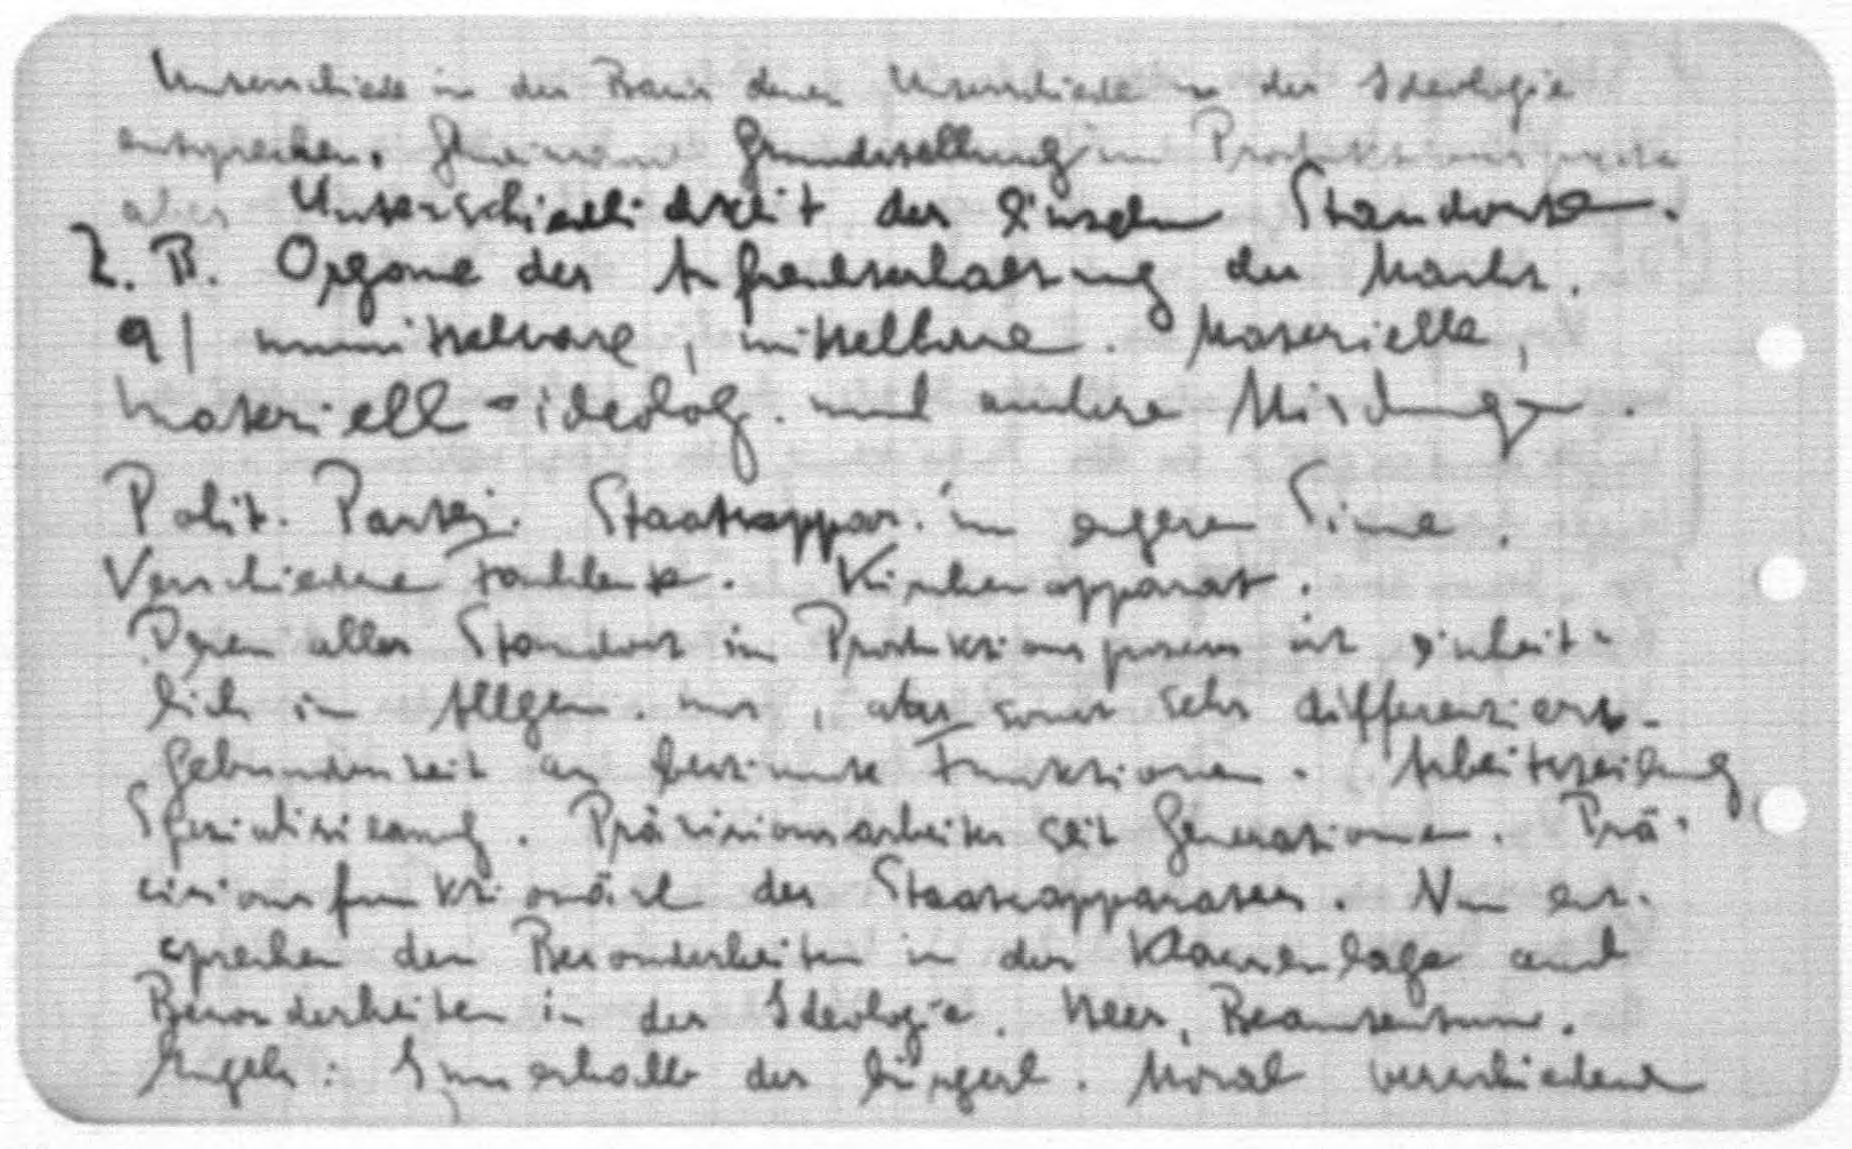 Unterschiede in der Basis denen Unterschiede in der Ideologie
entsprechen. Gemeinsame Grundstellung im Produktionsprozess
aber Unterschiedlichkeit der einzelnen Standorte.
Z. B. Organe der Aufrechterhaltung der Macht.
a) unmittelbare, mittelbare. Materielle,
materiell-ideolog. und andere Mischungen.
Polit. Partei. Staatsappar. im engeren Sinne.
Verschiedene Fachleute. Kirchenapparat.
Deren aller Standort im Produktionsprozess ist einheit-
lich im Allgem. nur, aber sonst sehr differenziert.
Gebundenheit an bestimmte Funktionen. Arbeitsteilung
Spezialisierung. Präzisionsarbeiter seit Generationen. Prä-
cisionsfunktionäre des Staatsapparates. Nun ent-
sprechen den Besonderheiten in der Klassenlage auch
Besonderheiten in der Ideologie. Heer, Beamtentum.
Engels: Innerhalb der bürgerl. Moral verschiedene